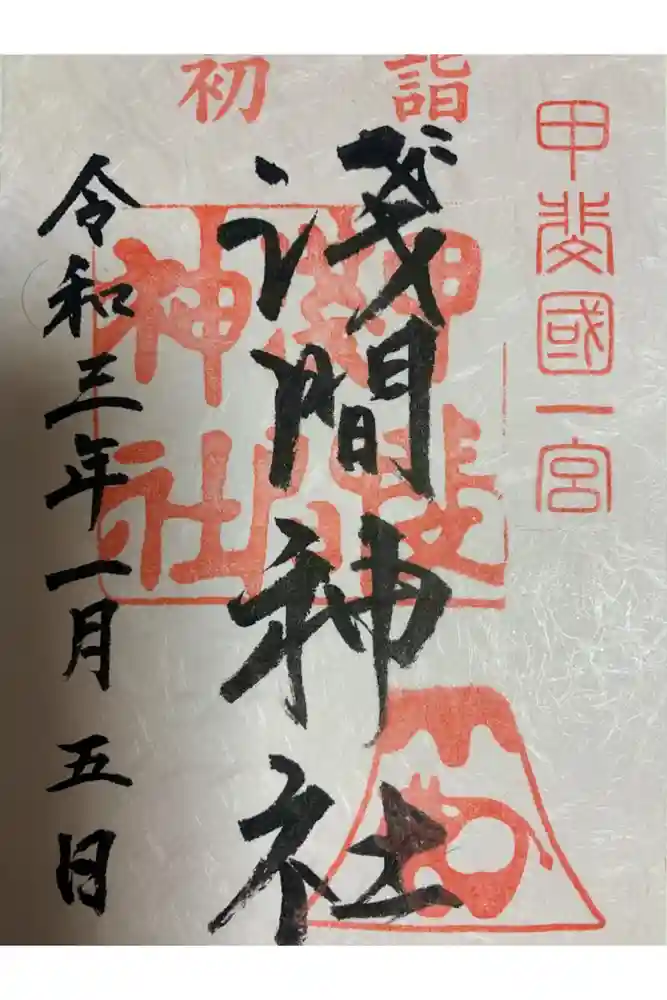 初詣
甲斐國一宮
淺間神社
甲斐
淺間
神社
令和三年一月五日